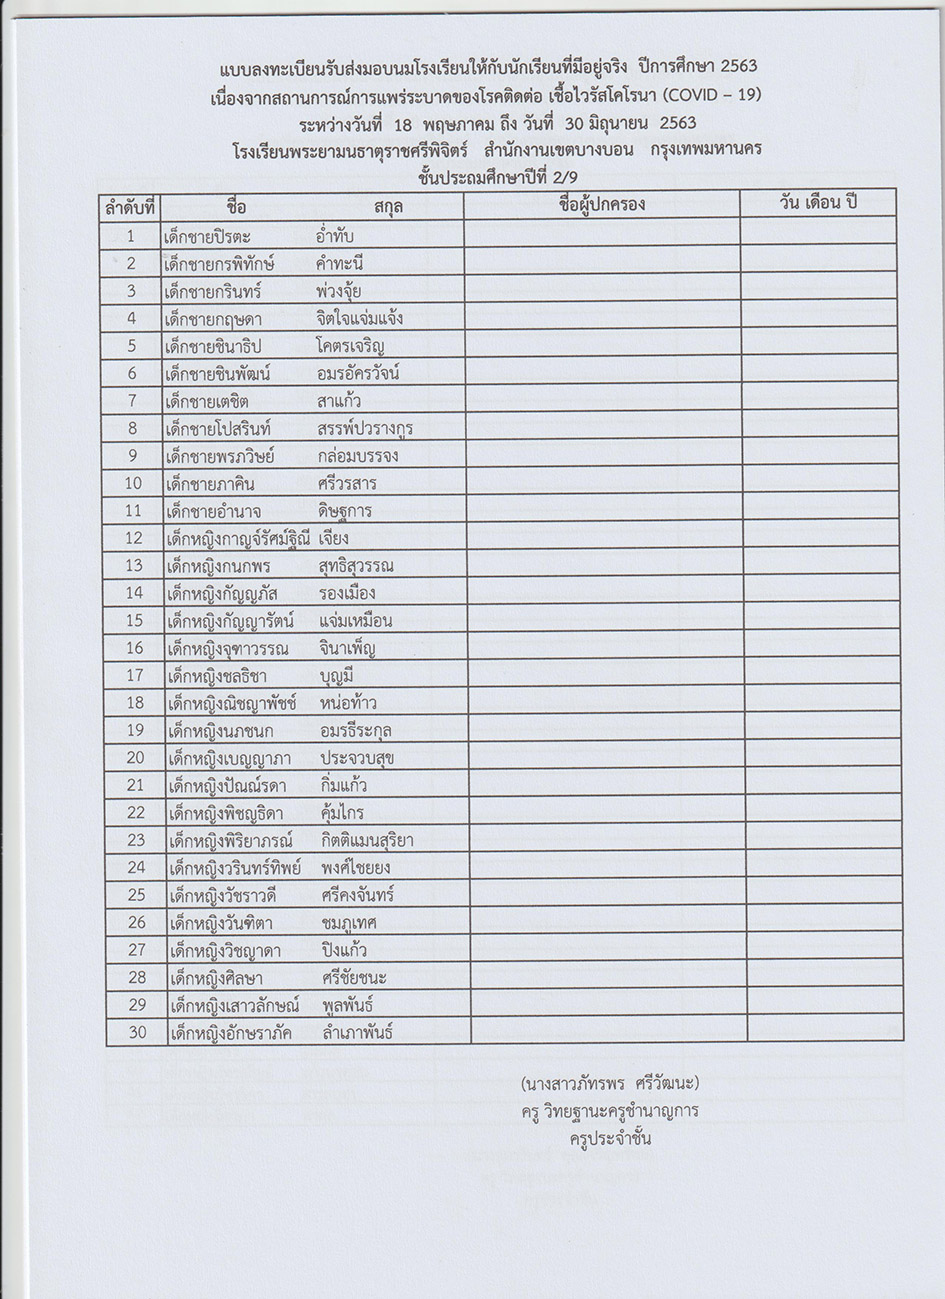 แบบลงทะเบียนรับส่งมอบนมโรงเรียนให้กับนักเรียนที่มีอยู่จริง ปีการศึกษา 2563
เนื่องจากสถานการณ์การแพร่ระบาดของโรคติดต่อ เชื้อไวรัสโคโรนา (COVID – 19)
ระหว่างวันที่ 18 พฤษภาคม ถึง วันที่ 30 มิถุนายน 2563
โรงเรียนพระยามนธาตุราชศรีพิจิตร์ สำนักงานเขตบางบอน กรุงเทพมหานคร
ชั้นประถมศึกษาปีที่ 2/9
ลำดับที่ ชื่อ สกุล ชื่อผู้ปกครอง วัน เดือน ปี
1 เด็กชายปิรตะ อ่ำทับ
2 เด็กชายกรพิทักษ์ คำทะนี
3 เด็กชายกรินทร์ พ่วงจุ้ย
4 เด็กชายกฤษดา จิตใจแจ่มแจ้ง
5 เด็กชายชินาธิป โคตรเจริญ
6 เด็กชายชินพัฒน์ อมรอัครวัจน์
7 เด็กชายเตชิต สาแก้ว
8 เด็กชายโปสรินท์ สรรพ์ปวรางกูร
9 เด็กชายพรภวิษย์ กล่อมบรรจง
10 เด็กชายภาคิน ศรีวรสาร
11 เด็กชายอำนาจ ดิษฐการ
12 เด็กหญิงกาญจ์รัศม์ฐิณี เจียง
13 เด็กหญิงกนกพร สุทธิสุวรรณ
14 เด็กหญิงกัญญภัส รองเมือง
15 เด็กหญิงกัญญารัตน์ แจ่มเหมือน
16 เด็กหญิงจุฑาวรรณ จินาเพ็ญ
17 เด็กหญิงชลธิชา บุญมี
18 เด็กหญิงณิชญาพัชช์ หน่อท้าว
19 เด็กหญิงนภชนก อมรธีระกุล
20 เด็กหญิงเบญญาภา ประจวบสุข
21 เด็กหญิงปัณณ์รดา กิ่มแก้ว
22 เด็กหญิงพิชญธิดา คุ้มไกร
23 เด็กหญิงพิริยาภรณ์ กิตติแมนสุริยา
24 เด็กหญิงวรินทร์ทิพย์ พงศ์ไชยยง
25 เด็กหญิงวัชราวดี ศรีคงจันทร์
26 เด็กหญิงวันฑิตา ชมภูเทศ
27 เด็กหญิงวิชญาดา ปิงแก้ว
28 เด็กหญิงศิลษา ศรีชัยชนะ
29 เด็กหญิงเสาวลักษณ์ พูลพันธ์
30 เด็กหญิงอักษราภัค ลำเภาพันธ์
(นางสาวภัทรพร ศรีวัฒนะ)
ครู วิทยฐานะครูชำนาญการ
ครูประจำชั้น